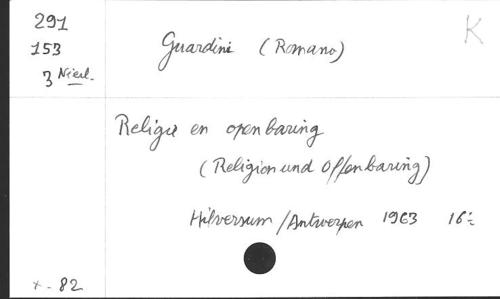 291
153
3 Nierl.
Guardini (Romano)
K
Religie en openbaring
(Religion und Offenbaring)
Hilversum / Antwerpen 1963 16=
x - 82